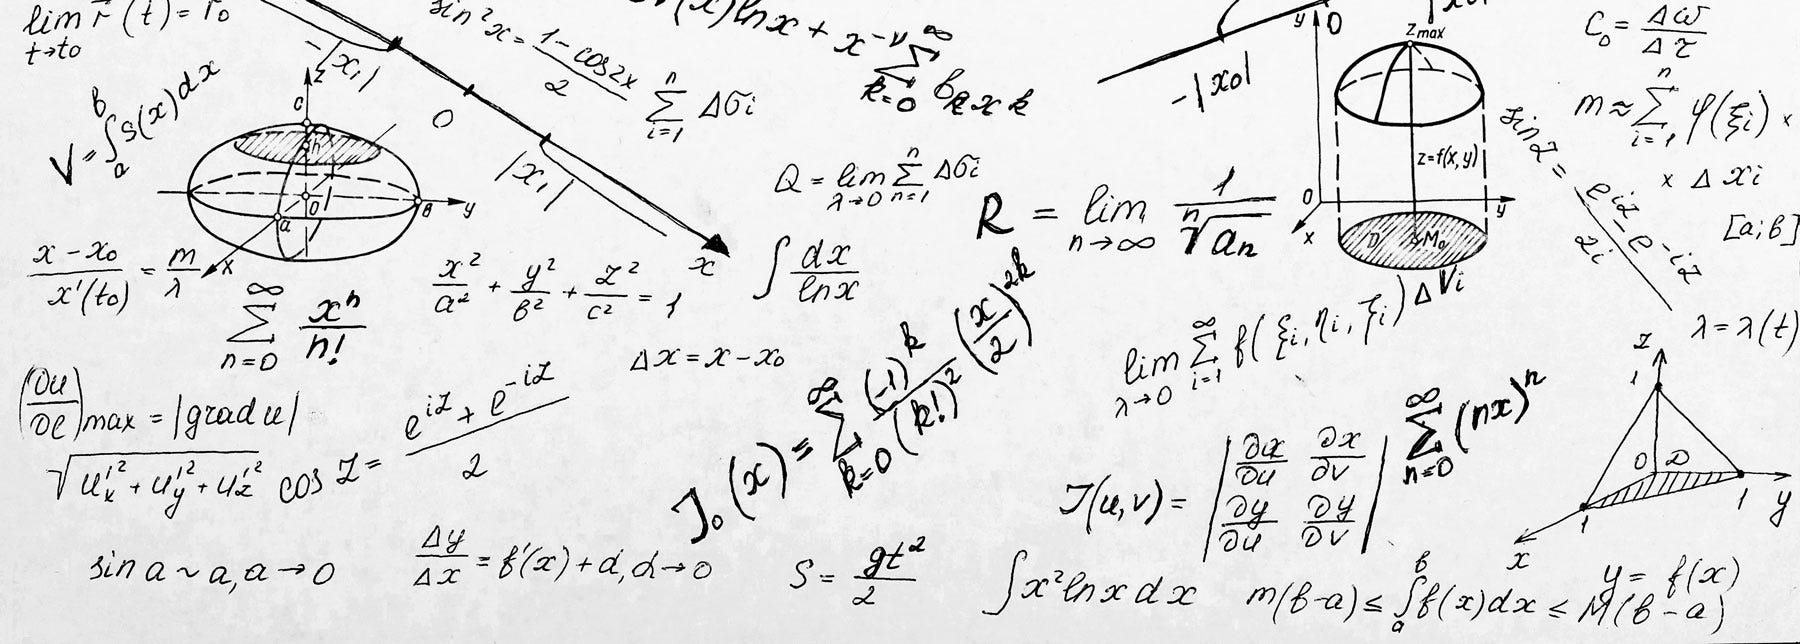 lim r⃗(t) = r₀
t→t₀
-|x₁|
sin²x = (1-cos2x)/2
(x)lnx + x^(-ν) ∑_(k=0)^∞ b_k x^k
-|x₀|
y 0
z max
C₀ = Δω/Δτ
V = ∫_a^b S(x)dx
z
c
h
0
a
B
y
x
0
|x₁|
x
∑_(i=1)^n Δσi
Q = lim_(λ→0) ∑_(n=1)^n Δσi
R = lim_(n→∞) 1/ⁿ√aₙ
z=f(x,y)
0
y
x
D
M₀
sin z = (e^(iz) - e^(-iz))/2i
m ≈ ∑_(i=1)^n φ(ξi) ×
× Δxi
[a;b]
(x-x₀)/x'(t₀) = m/λ
∑_(n=0)^∞ xⁿ/n!
x²/a² + y²/b² + z²/c² = 1
∫ dx/lnx
Δx = x-x₀
lim_(λ→0) ∑_(i=1)^∞ f(ξi, ηi, ξi) ΔVi
λ = λ(t)
(∂u/∂e)max = |grad u|
√(u'ₓ² + u'ᵧ² + u'_z²)
cos z = (e^(iz) + e^(-iz))/2
J₀(x) = ∑_(k=0)^∞ (-1)^k/(k!)² (x/2)^(2k)
J(u,v) = | ∂x/∂u ∂x/∂v |
| ∂y/∂u ∂y/∂v |
∑_(n=0)^∞ (nx)ⁿ
z
1
0 D
1
1
y
x
sin a ~ a, a → 0
Δy/Δx = f'(x) + d, d → 0
S = gt²/2
∫x² lnx dx
m(b-a) ≤ ∫_a^b f(x)dx ≤ M(b-a)
y = f(x)